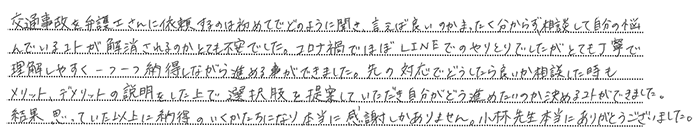 交通事故を弁護士さんに依頼するのは初めてでどのように聞き、言えば良いのかまったく分からず相談して自分の悩
んでいるコトが解消されるのかとても不安でした。コロナ禍でほぼLINEでのやりとりでしたがとても丁寧で
理解しやすく一つ一つ納得しながら進める事ができました。先の対応でどうしたら良いか相談した時も
メリット、デメリットの説明をした上で選択肢を提案していただき自分がどう進めたいのか決めるコトができました。
結果、思っていた以上に納得のいくかたちになり本当に感謝しかありません。小林先生本当にありがとうございました。